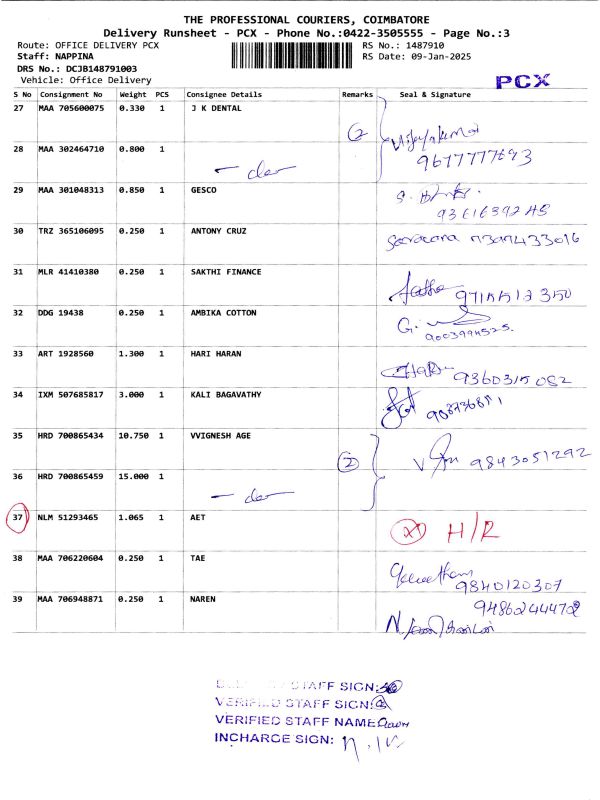 THE PROFESSIONAL COURIERS, COIMBATORE
Delivery Runsheet - PCX - Phone No.:0422-3505555 - Page No.:3
Route: OFFICE DELIVERY PCX RS No.: 1487910
Staff: NAPPINA RS Date: 09-Jan-2025
DRS No.: DCJB148791003
Vehicle: Office Delivery PCX
S No Consignment No Weight PCS Consignee Details Remarks Seal & Signature
27 MAA 705600075 0.330 1 J K DENTAL
2 Vijayakumar
28 MAA 302464710 0.800 1 9677777693
29 MAA 301048313 0.850 1 GESCO
30 TRZ 365106095 0.250 1 ANTONY CRUZ
31 MLR 41410380 0.250 1 SAKTHI FINANCE
32 DDG 19438 0.250 1 AMBIKA COTTON G.
33 ART 1928560 1.300 1 HARI HARAN
9360315082
34 IXM 507685817 3.000 1 KALI BAGAVATHY
35 HRD 700865434 10.750 1 VVIGNESH AGE
2 9843051292
36 HRD 700865459 15.000 1
37 NLM 51293465 1.065 1 AET H/R
38 MAA 706220604 0.250 1 TAE
9840120307
39 MAA 706948871 0.250 1 NAREN 9486244472
STAFF SIGN:
VERIFIED STAFF SIGN:
VERIFIED STAFF NAME
INCHARGE SIGN: